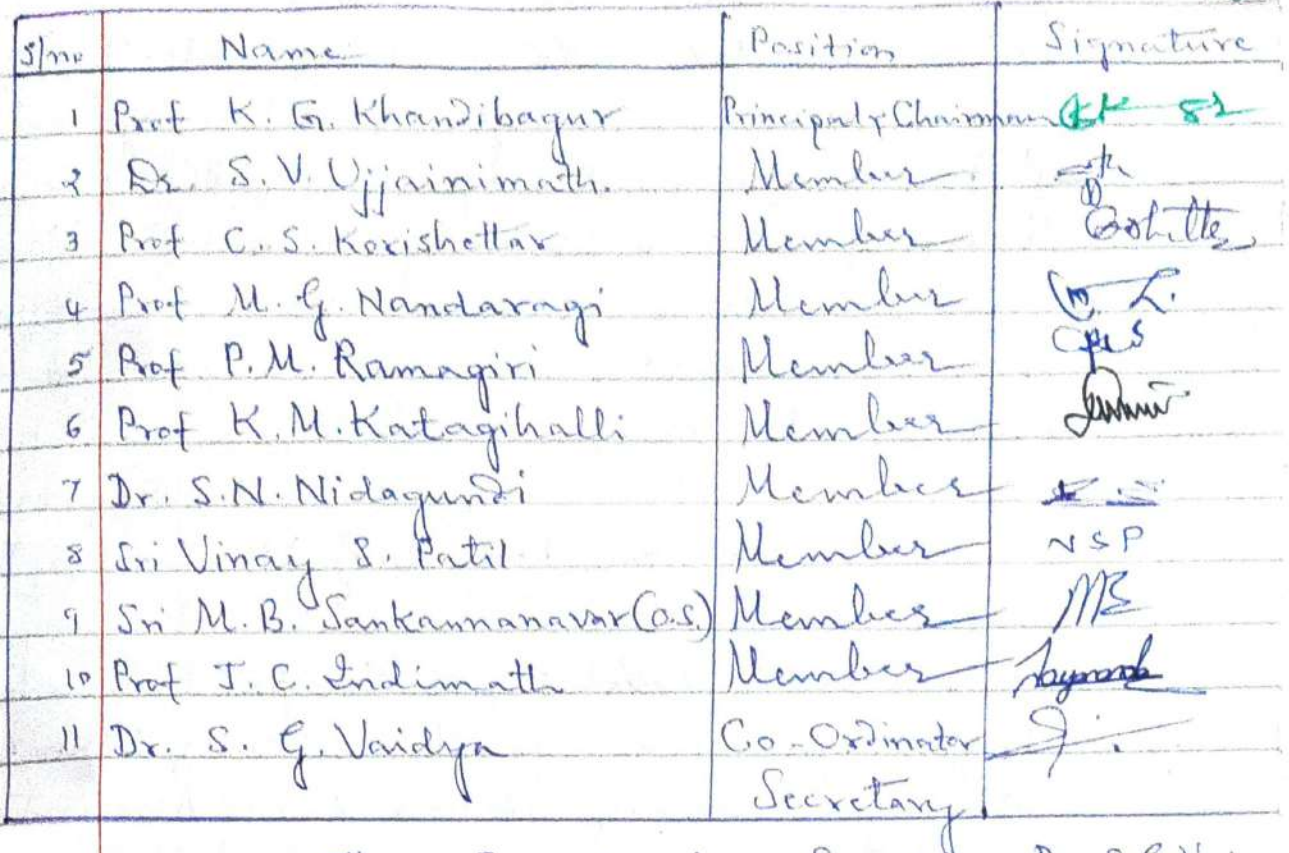 S/no Name Position Signature
1 Prof K. G. Khandibagur Principal & Chairman
2 Dr. S. V. Ujjainimath. Member
3 Prof C. S. Korishettar Member
4 Prof M. G. Nandaragi Member
5 Prof P. M. Ramagiri Member
6 Prof K. M. Katagihalli Member
7 Dr. S. N. Nidagundi Member
8 Sri Vinay S. Patil Member NSP
9 Sri M. B. Sankannanavar (O.S.) Member MB
10 Prof J. C. Indimath Member
11 Dr. S. G. Vaidya Co-Ordinator
Secretary